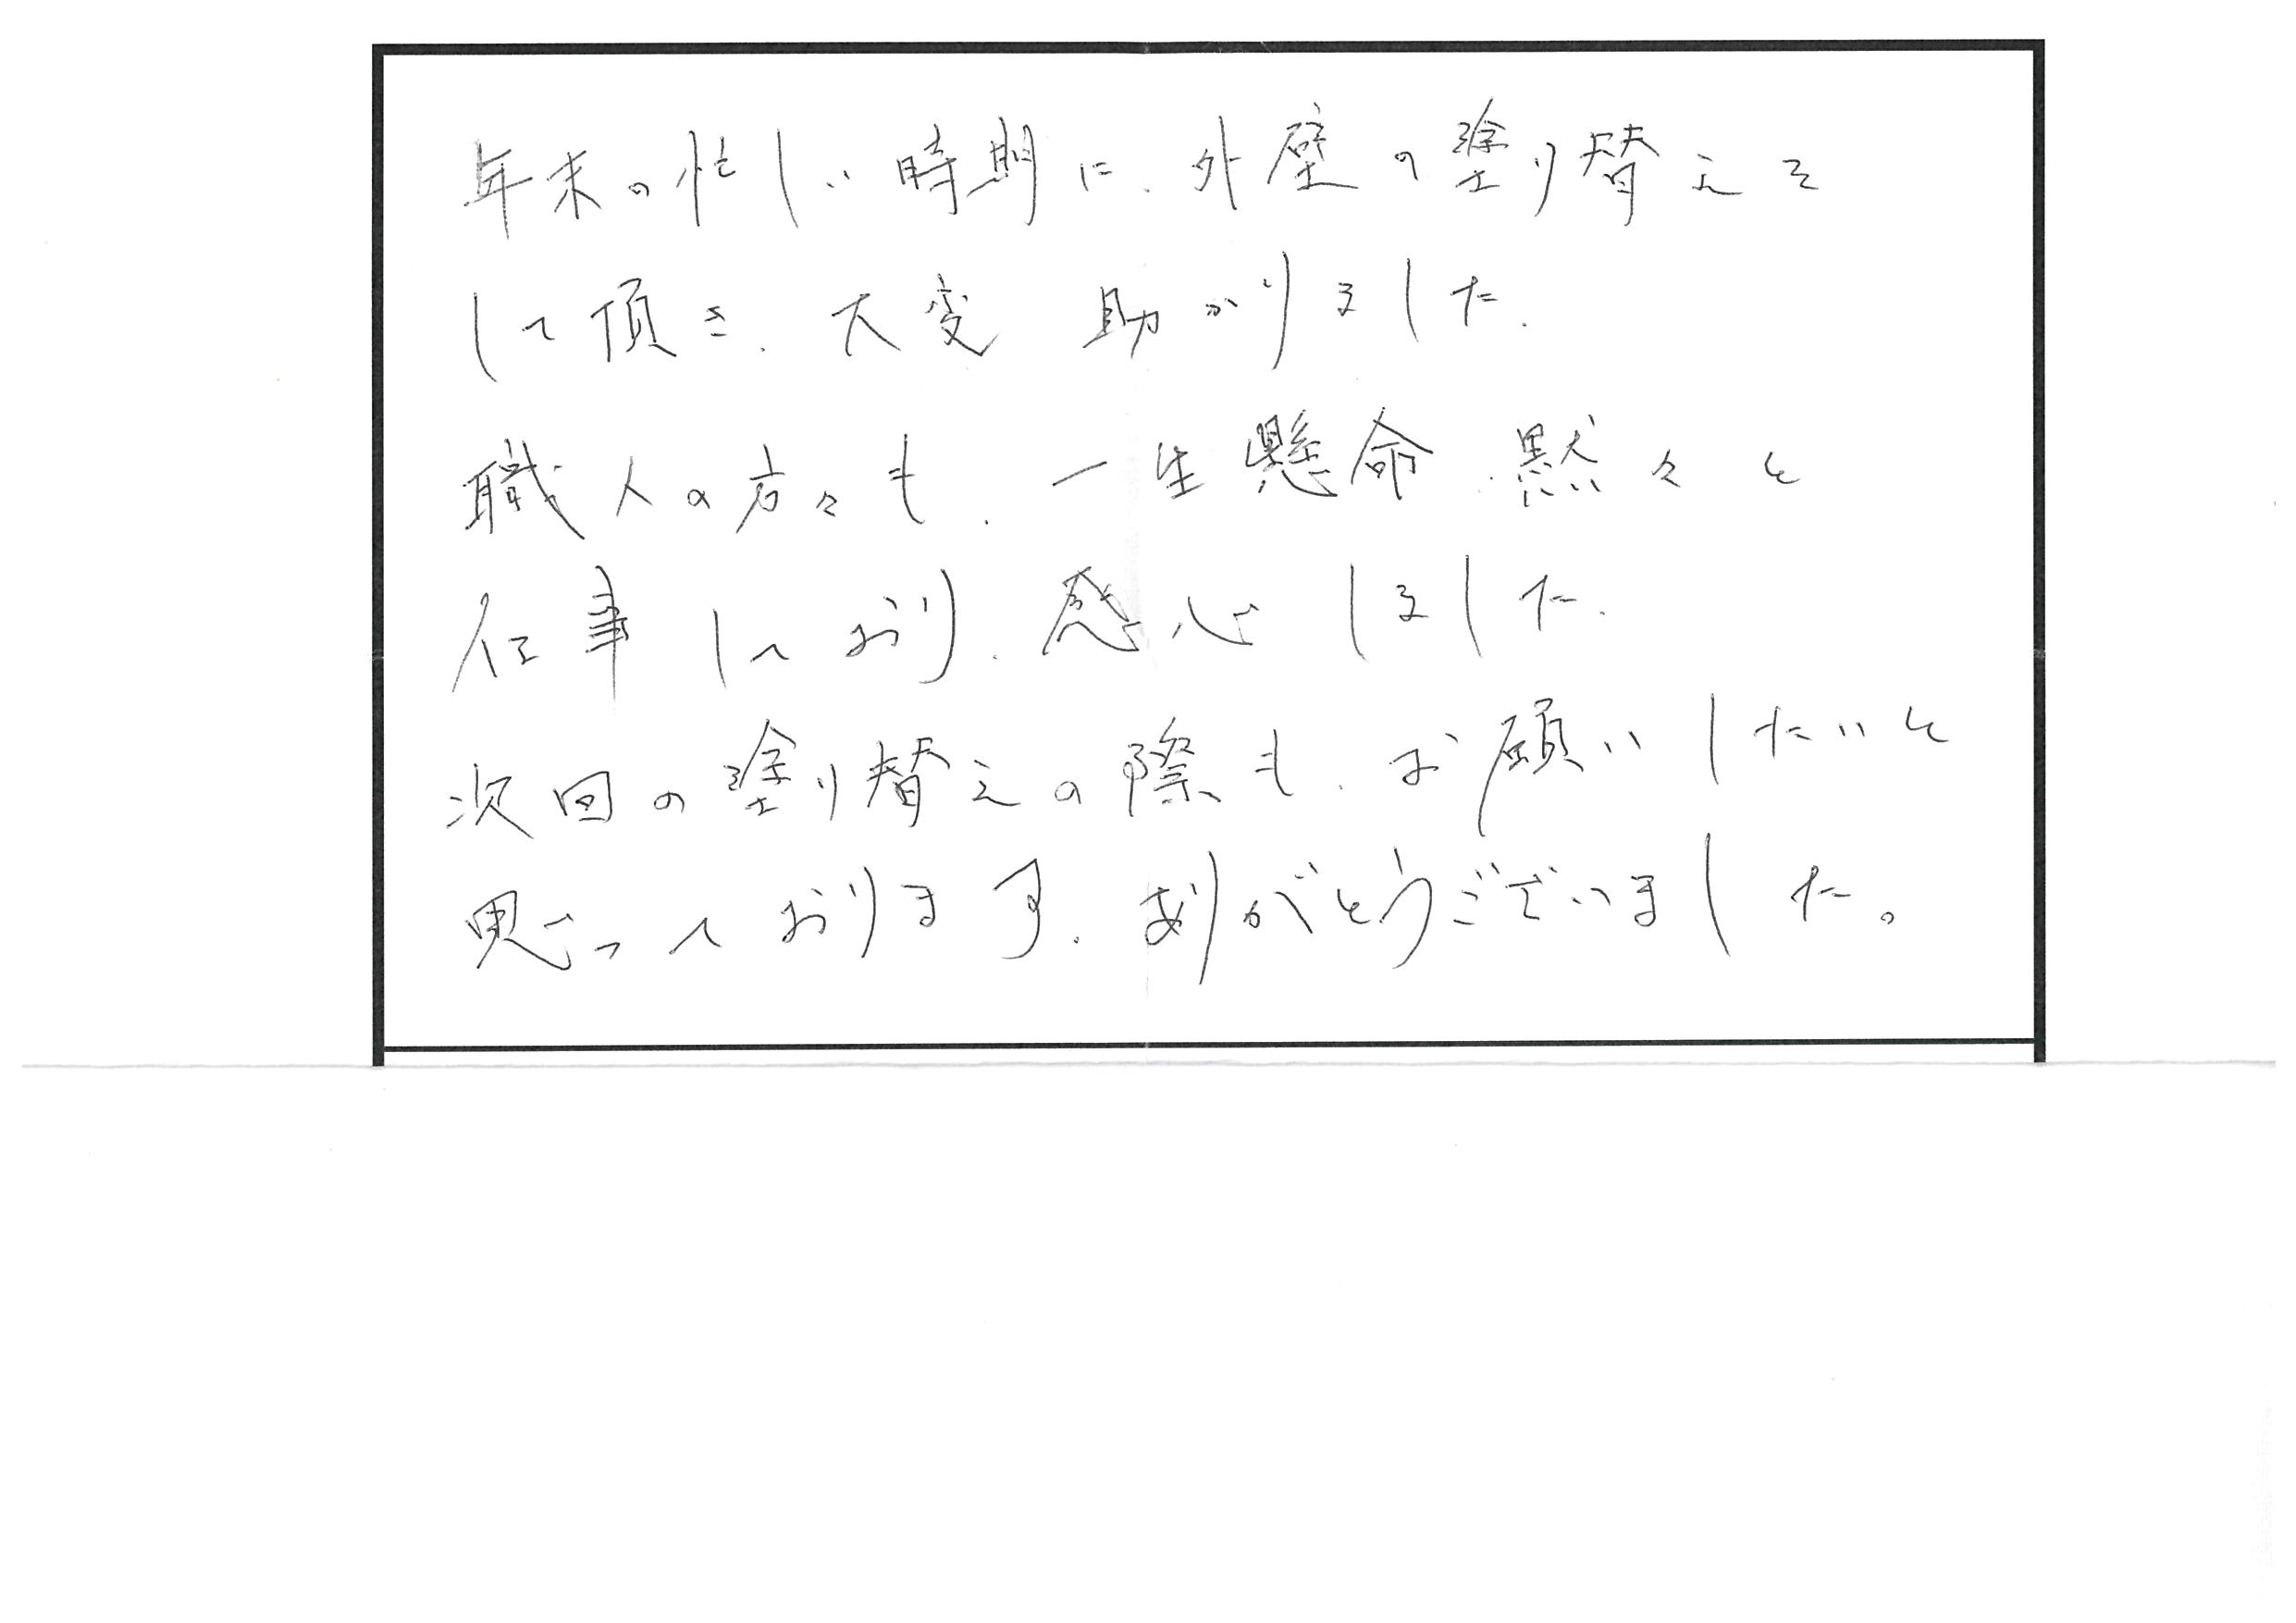 年末の忙しい時期に、外壁の塗り替えを
して頂き、大変助かりました。
職人の方々も、一生懸命、黙々と
仕事しており、感心しました。
次回の塗り替えの際も、お願いしたいと
思っております。ありがとうございました。